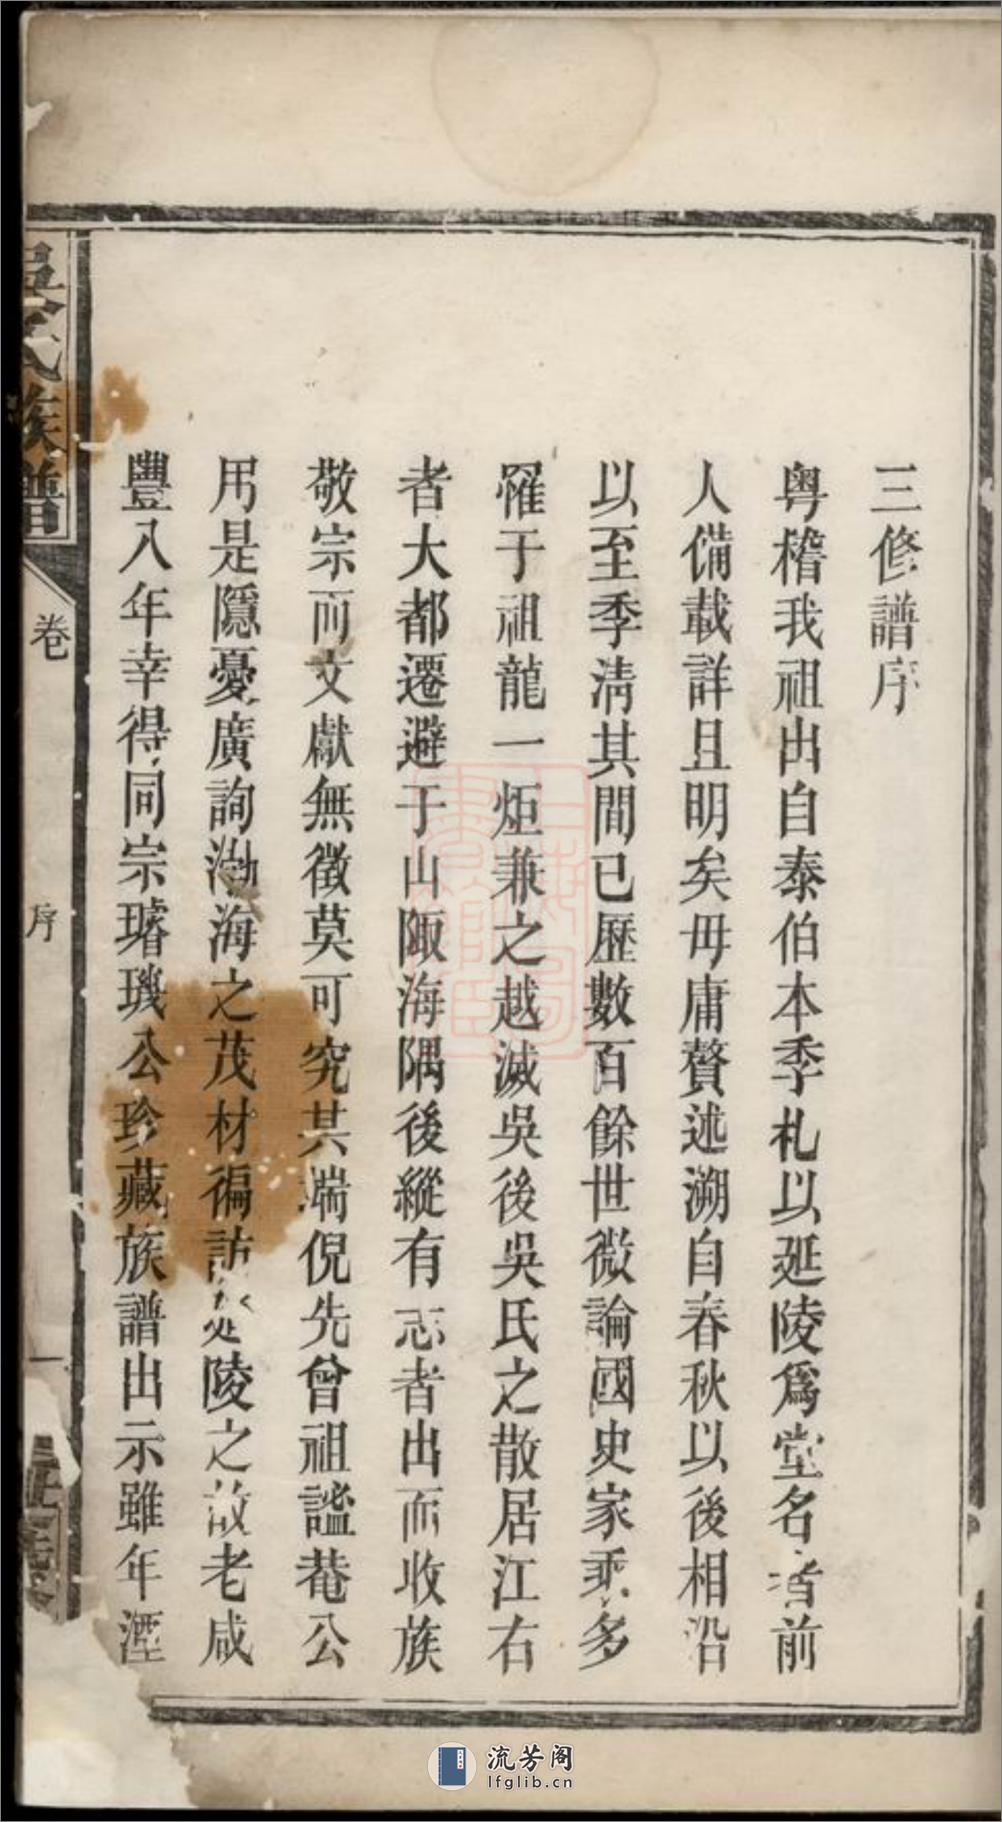 三修譜序
粤稽我祖出自泰伯本季札以延陵爲堂名者前
人備載詳且明矣毋庸贅述溯自春秋以後相沿
以至季淸其間已歷數百餘世微論國史家乘多
罹于祖龍一炬兼之越滅吳後吳氏之散居江右
者大都遷避于山陬海隅後縱有志者出而收族
敬宗而文獻無徵莫可究其端倪先曾祖謐菴公
用是隱憂廣詢渤海之茂材徧訪延陵之故老咸
豐八年幸得同宗璿璣公珍藏族譜出示雖年湮
吳氏族譜
卷
序
一
上海圖書館藏
流芳阁
lfglib.cn